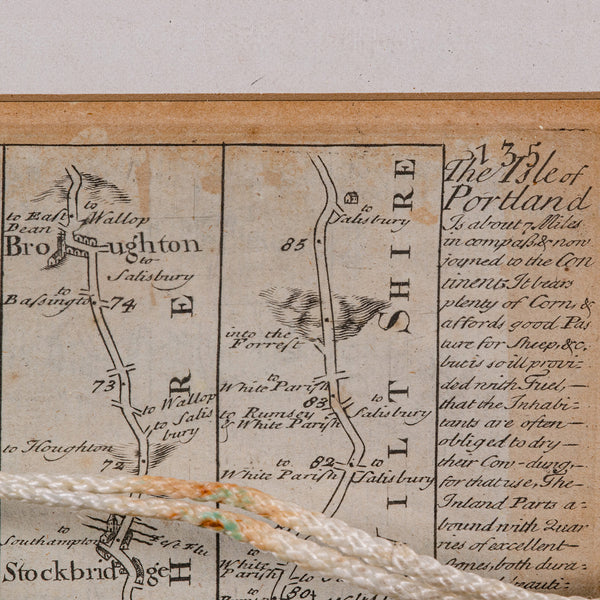 135
The Isle of
Portland
Is about 7 Miles
in compaſs & now
joyned to the Con
tinent. It bears
plenty of Corn &
affords good Pas
ture for Sheep, &c.
but is so ill provi-
ded with Fuel,
that the Inhabi-
tants are often
obliged to dry
their Cow-dung,
for that use, The
Inland Parts a-
bound with Quar
ries of excellent
Stones both dura-
beauti-
to East
Dean
to
Wallop
Broughton
to
Salisbury
to
Bassington
74
73
to Wallop
to Salis
bury
to Houghton
72
to
Southampton
Test Flu
Stockbridge
H
R
E
to
Salisbury
85
into the
Forrest
to
White Parish
83
to
Salisbury
to Rumsey
& White Parish
82
to
White Parish
to
Salisbury
to
White
Parish
80
WILT SHIRE